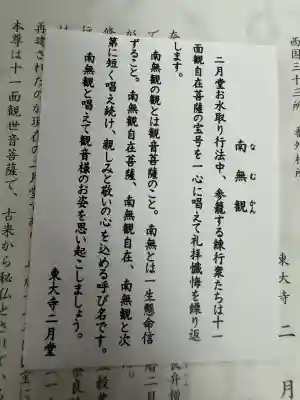 西国三十三所 番外札所
東大寺 二月
南無観
なむかん
二月堂お水取り行法中、参籠する練行衆たちは十一
面観自在菩薩の宝号を一心に唱えて礼拝懺悔を繰り返
します。
南無観の観とは観音菩薩のこと。南無とは一生懸命信
ずること。南無観自在菩薩、南無観自在、南無観と次
第に短く唱え続け、親しみと敬いの心を込める呼び名です。
南無観と唱えて観音様のお姿を思い起こしましょう。
東大寺二月堂
再建されたのが現在の二月堂であ
本尊は十一面観世音菩薩で、古来から秘仏とされてい